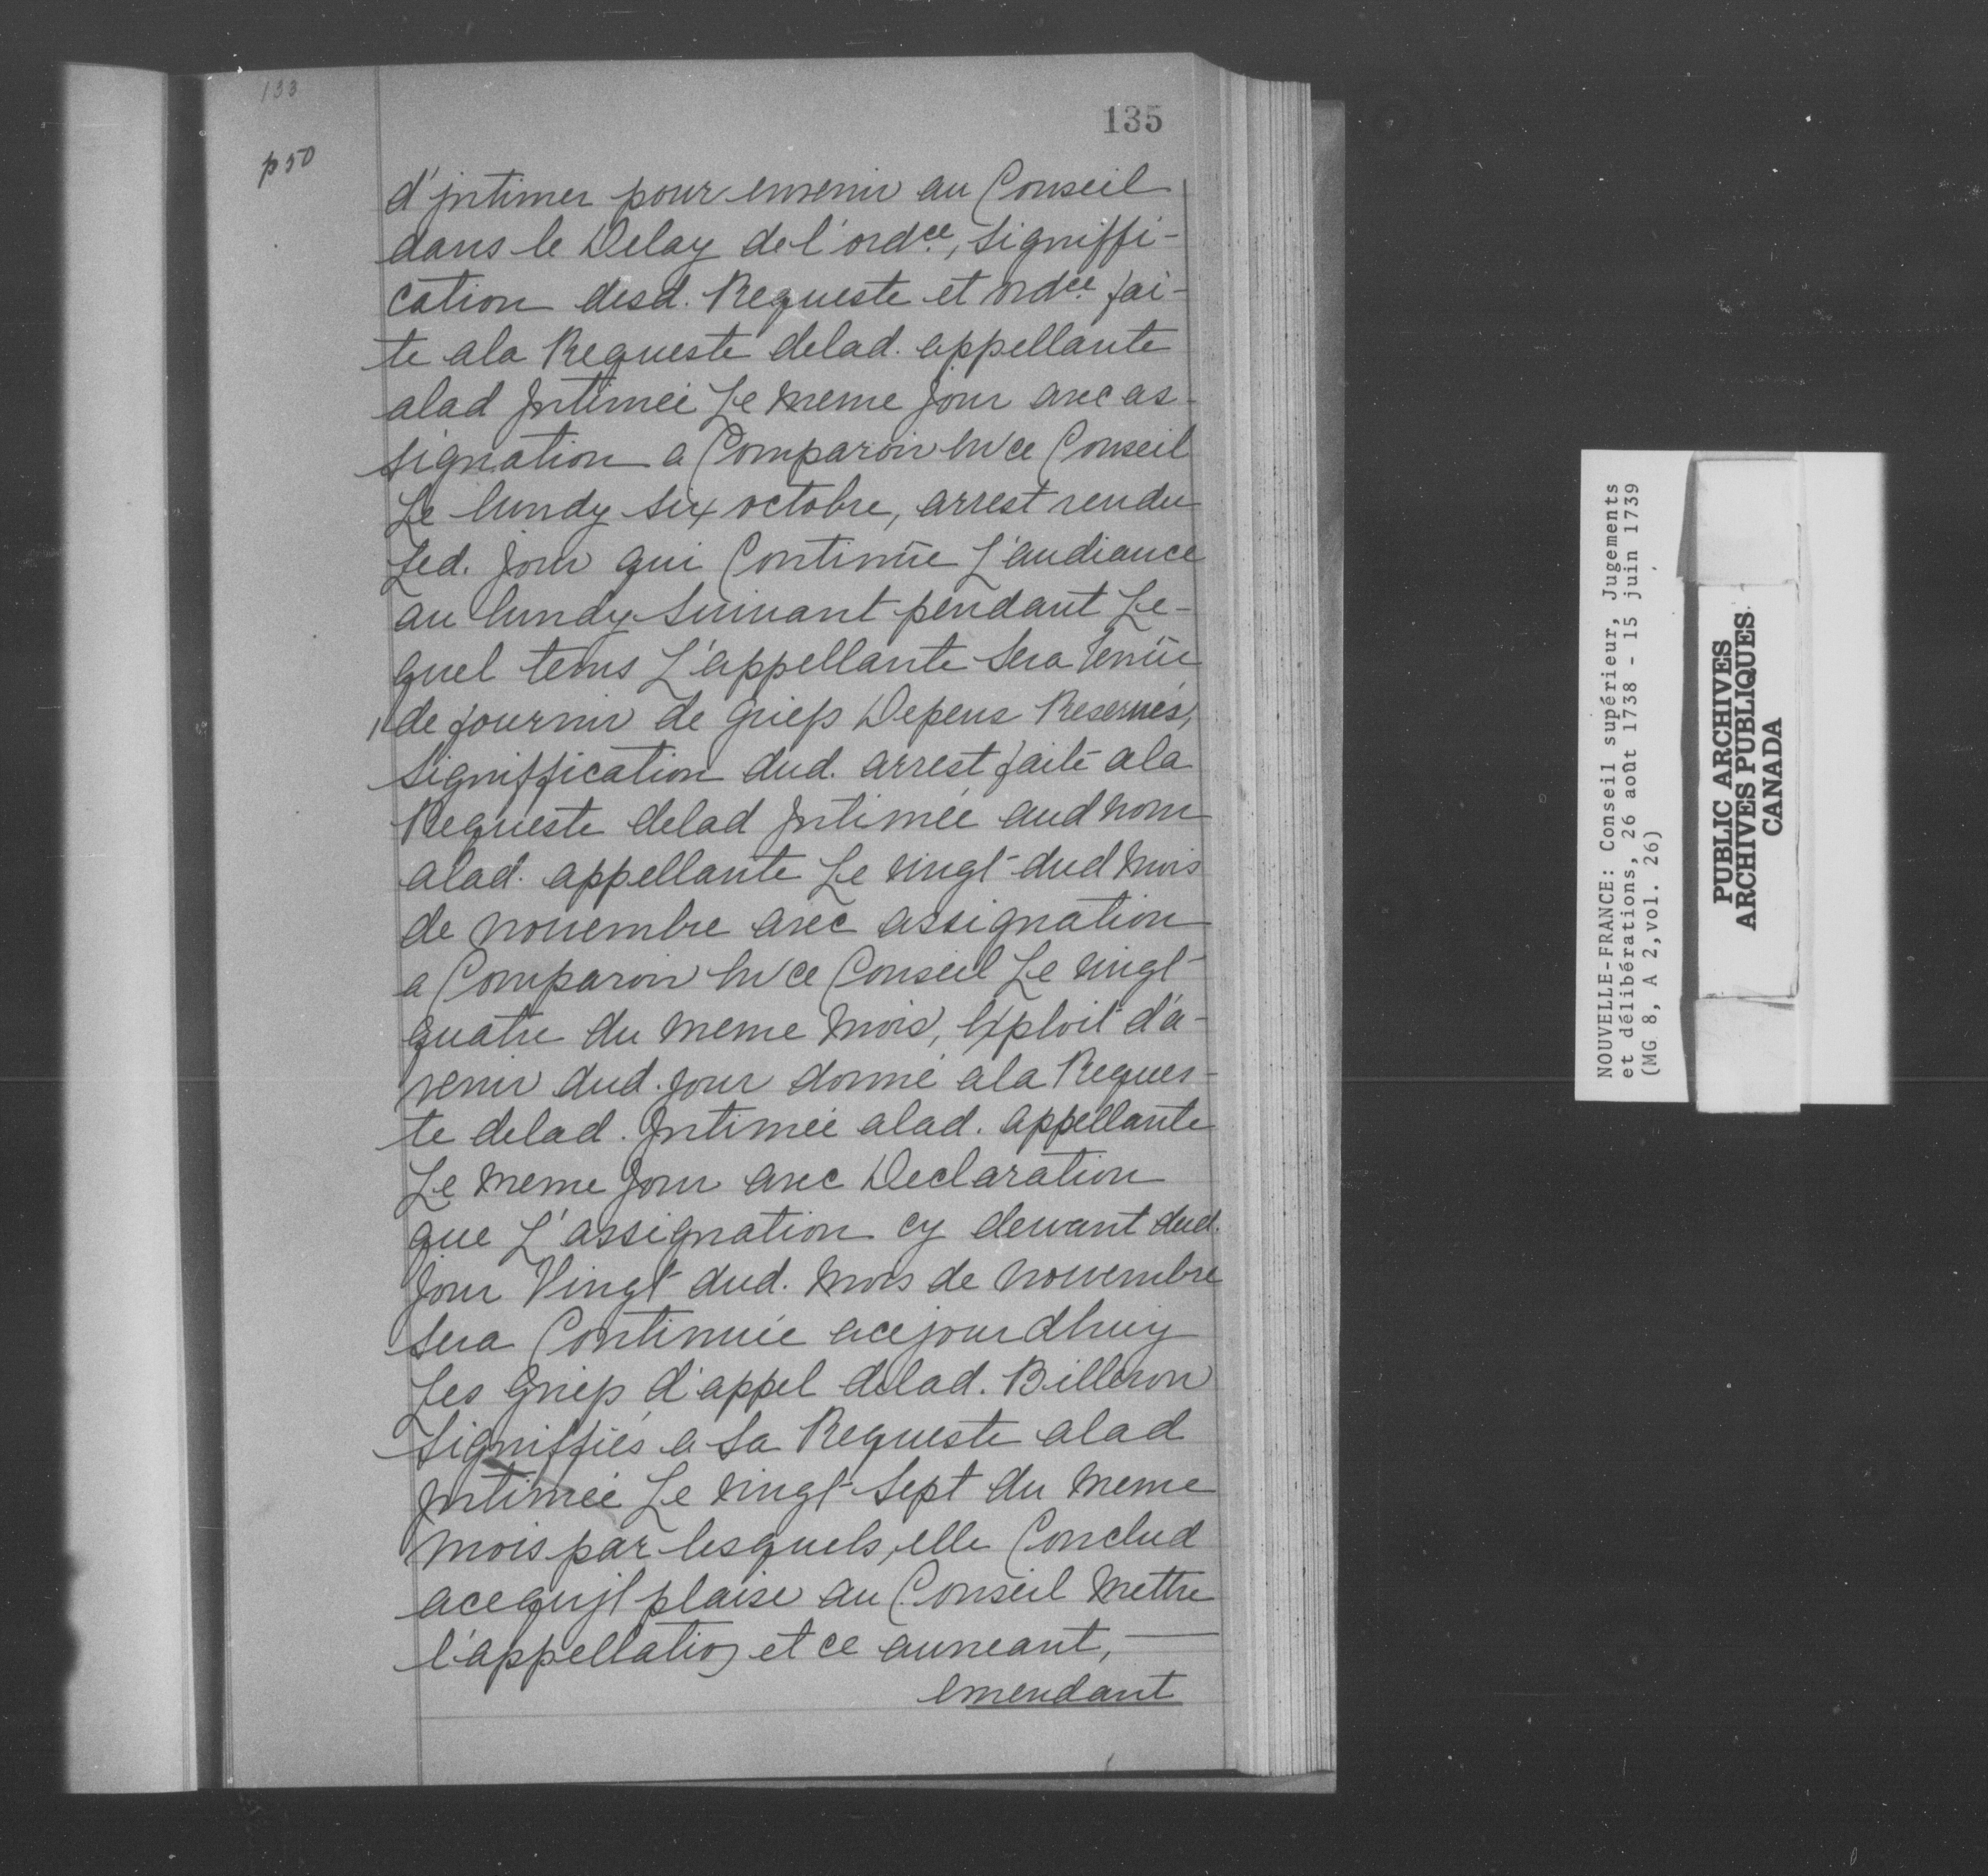 133
135
p 50
d'jntimer pour envenir au Conseil
dans le Delay de l'ordce, signiffi-
cation desd. Requeste et ordce fai-
te ala Requeste delad. appellante
alad Jntimée Le meme Jour avec as-
signation a Comparoir en ce Conseil
Le lundy six octobre, arrest rendu
Led. Jour qui Continüe L'audiance
au lundy suivant pendant Le-
quel tems L'appellante sera tenüe
de fournir de griefs Depens Reservés,
signiffication dud. arrest faite ala
Requeste delad Jntimée aud nom
alad. appellante Le vingt dud mois
de novembre avec assignation
a Comparoir en ce Conseil Le vingt
quatre du meme mois, exploit d'a-
venir dud. jour donné ala Reques-
te delad. Jntimée alad. appellante
Le meme Jour avec Declaration
que L'assignation cy devant dud.
Jour Vingt dud. mois de novembre
sera Continuée acejourdhuy
Les griefs d'appel delad. Billeron
signiffiés a sa Requeste alad
Jntimée Le vingt sept du meme
mois par lesquels, elle Conclud
acequjl plaise au Conseil mettre
l'appellation et ce auneant,
emendant
NOUVELLE-FRANCE: Conseil supérieur, Jugements
et délibérations, 26 août 1738 - 15 juin 1739
(MG 8, A 2, vol. 26)
PUBLIC ARCHIVES
ARCHIVES PUBLIQUES
CANADA